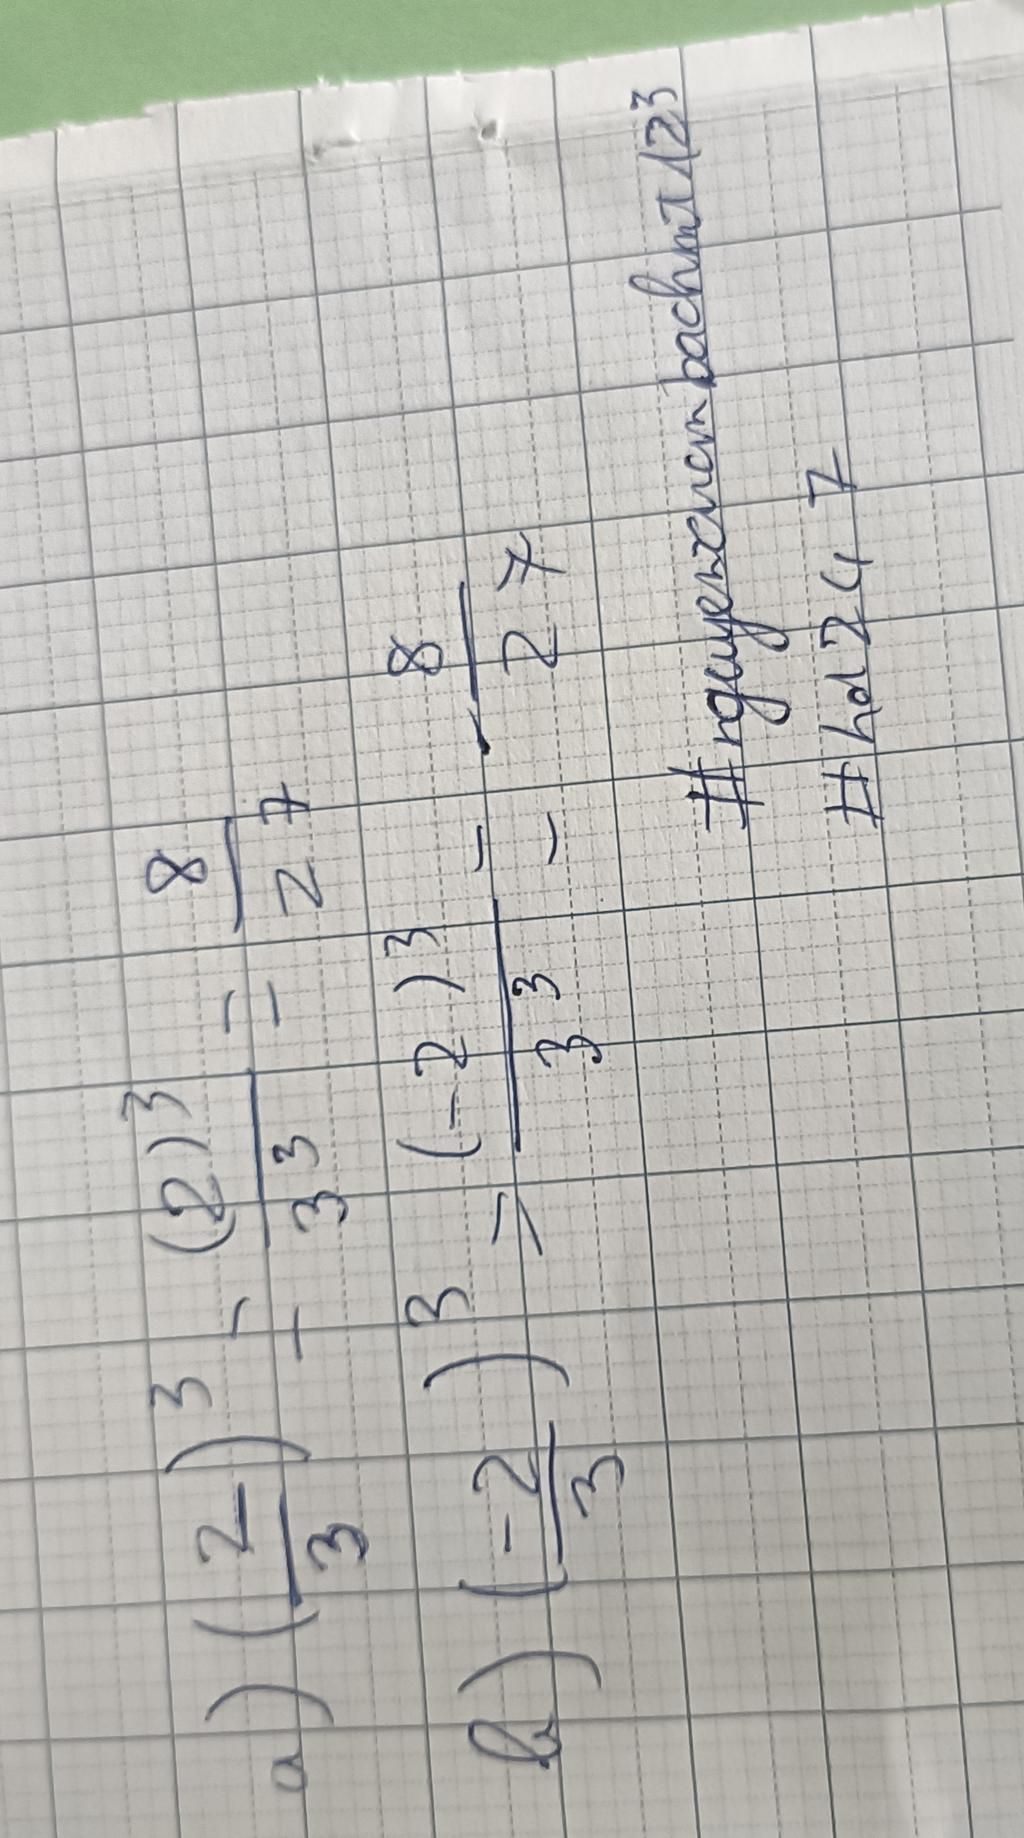 a) (2/3)³ = (2)³/3³ = 8/27
b) (-2/3)³ = (-2)³/3³ = -8/27
#nguyenxuanbachmt123
#hd247